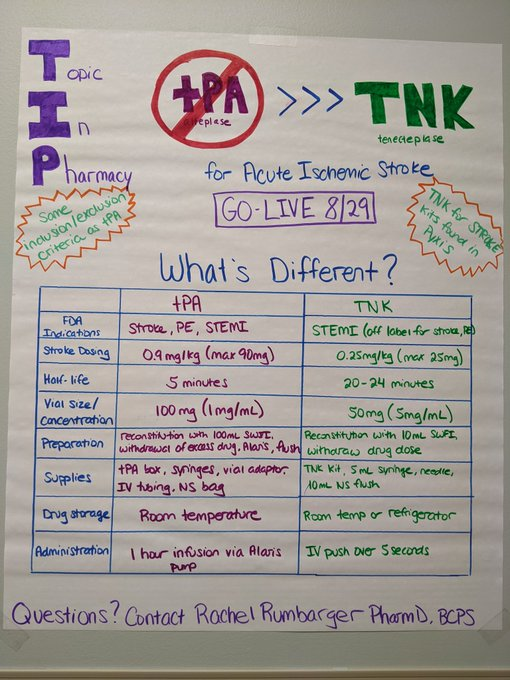 Topic
In
Pharmacy
tPA >>> TNK
alteplase
tenecteplase
for Acute Ischemic Stroke
GO-LIVE 8/29
Same
inclusion/exclusion
criteria as tPA
TNK for STROKE
kits found in
Pyxis
What's Different?
tPA TNK
FDA Indications Stroke, PE, STEMI STEMI (off label for stroke, PE)
Stroke Dosing 0.9 mg/kg (max 90mg) 0.25mg/kg (max 25mg)
Half-life 5 minutes 20-24 minutes
Vial Size/ Concentration 100mg (1mg/mL) 50mg (5mg/mL)
Preparation reconstitution with 100mL SWFI, withdrawal of excess drug, Alaris, flush Reconstitution with 10mL SWFI, withdraw drug dose
Supplies tPA box, syringes, vial adaptor, IV tubing, NS bag TNK Kit, 5mL syringe, needle, 10mL NS flush
Drug storage Room temperature Room temp or refrigerator
Administration 1 hour infusion via Alaris pump IV push over 5 seconds
Questions? Contact Rachel Rumbarger PharmD, BCPS